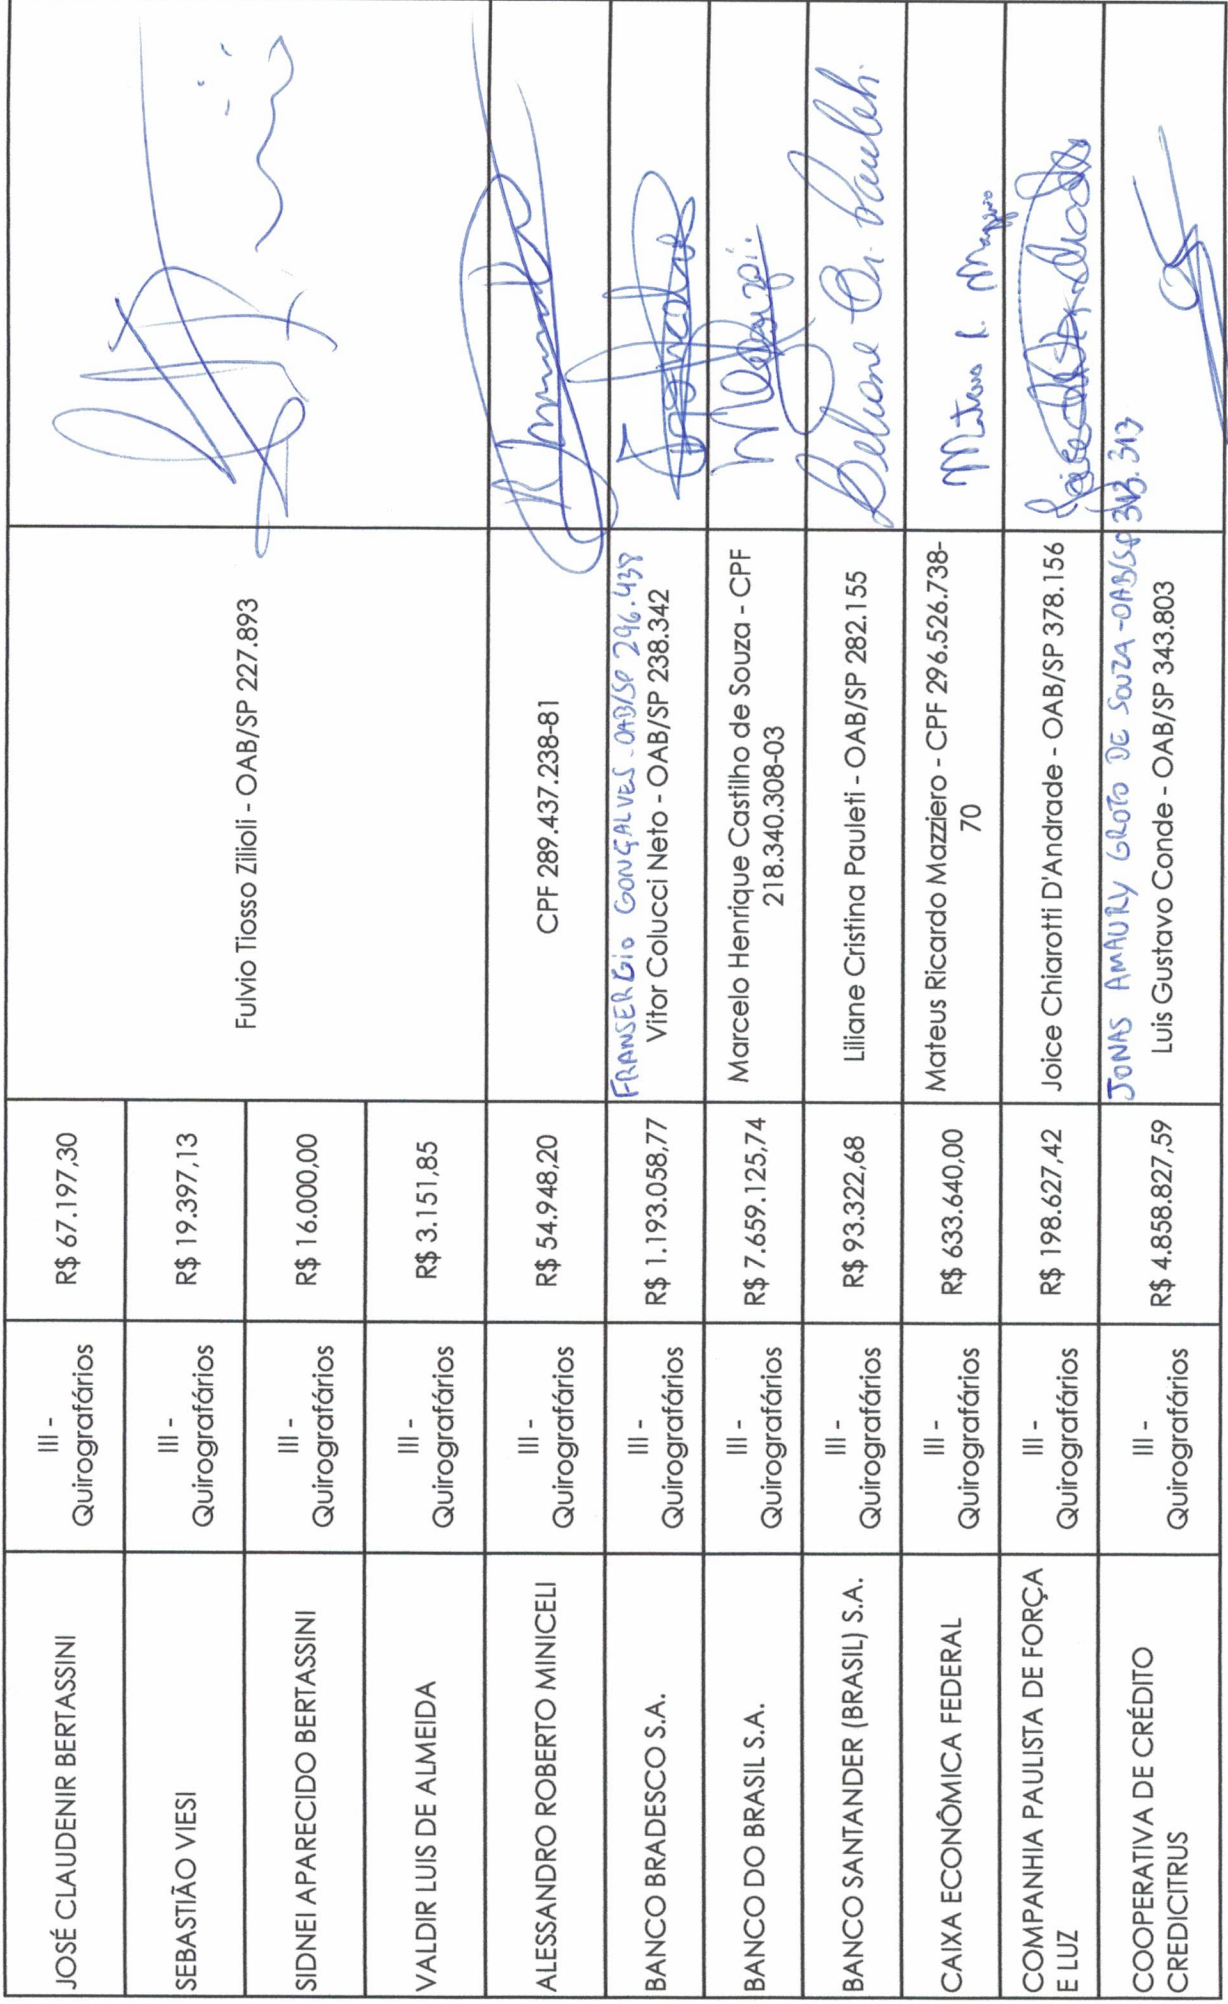 JOSÉ CLAUDENIR BERTASSINI
III -
Quirografários
R$ 67.197,30
Fulvio Tiosso Zilioli - OAB/SP 227.893
SEBASTIÃO VIESI
III -
Quirografários
R$ 19.397,13
SIDNEI APARECIDO BERTASSINI
III -
Quirografários
R$ 16.000,00
VALDIR LUIS DE ALMEIDA
III -
Quirografários
R$ 3.151,85
ALESSANDRO ROBERTO MINICELI
III -
Quirografários
R$ 54.948,20
CPF 289.437.238-81
BANCO BRADESCO S.A.
III -
Quirografários
R$ 1.193.058,77
FRANSERGIO GONÇALVES - OAB/SP 296.438
Vitor Colucci Neto - OAB/SP 238.342
BANCO DO BRASIL S.A.
III -
Quirografários
R$ 7.659.125,74
Marcelo Henrique Castilho de Souza - CPF
218.340.308-03
BANCO SANTANDER (BRASIL) S.A.
III -
Quirografários
R$ 93.322,68
Liliane Cristina Pauleti - OAB/SP 282.155
CAIXA ECONÔMICA FEDERAL
III -
Quirografários
R$ 633.640,00
Mateus Ricardo Mazziero - CPF 296.526.738-
70
Mateus R. Mazziero
COMPANHIA PAULISTA DE FORÇA
E LUZ
III -
Quirografários
R$ 198.627,42
Joice Chiarotti D'Andrade - OAB/SP 378.156
COOPERATIVA DE CRÉDITO
CREDICITRUS
III -
Quirografários
R$ 4.858.827,59
JONAS AMAURY GROTO DE SOUZA - OAB/SP 313.313
Luis Gustavo Conde - OAB/SP 343.803